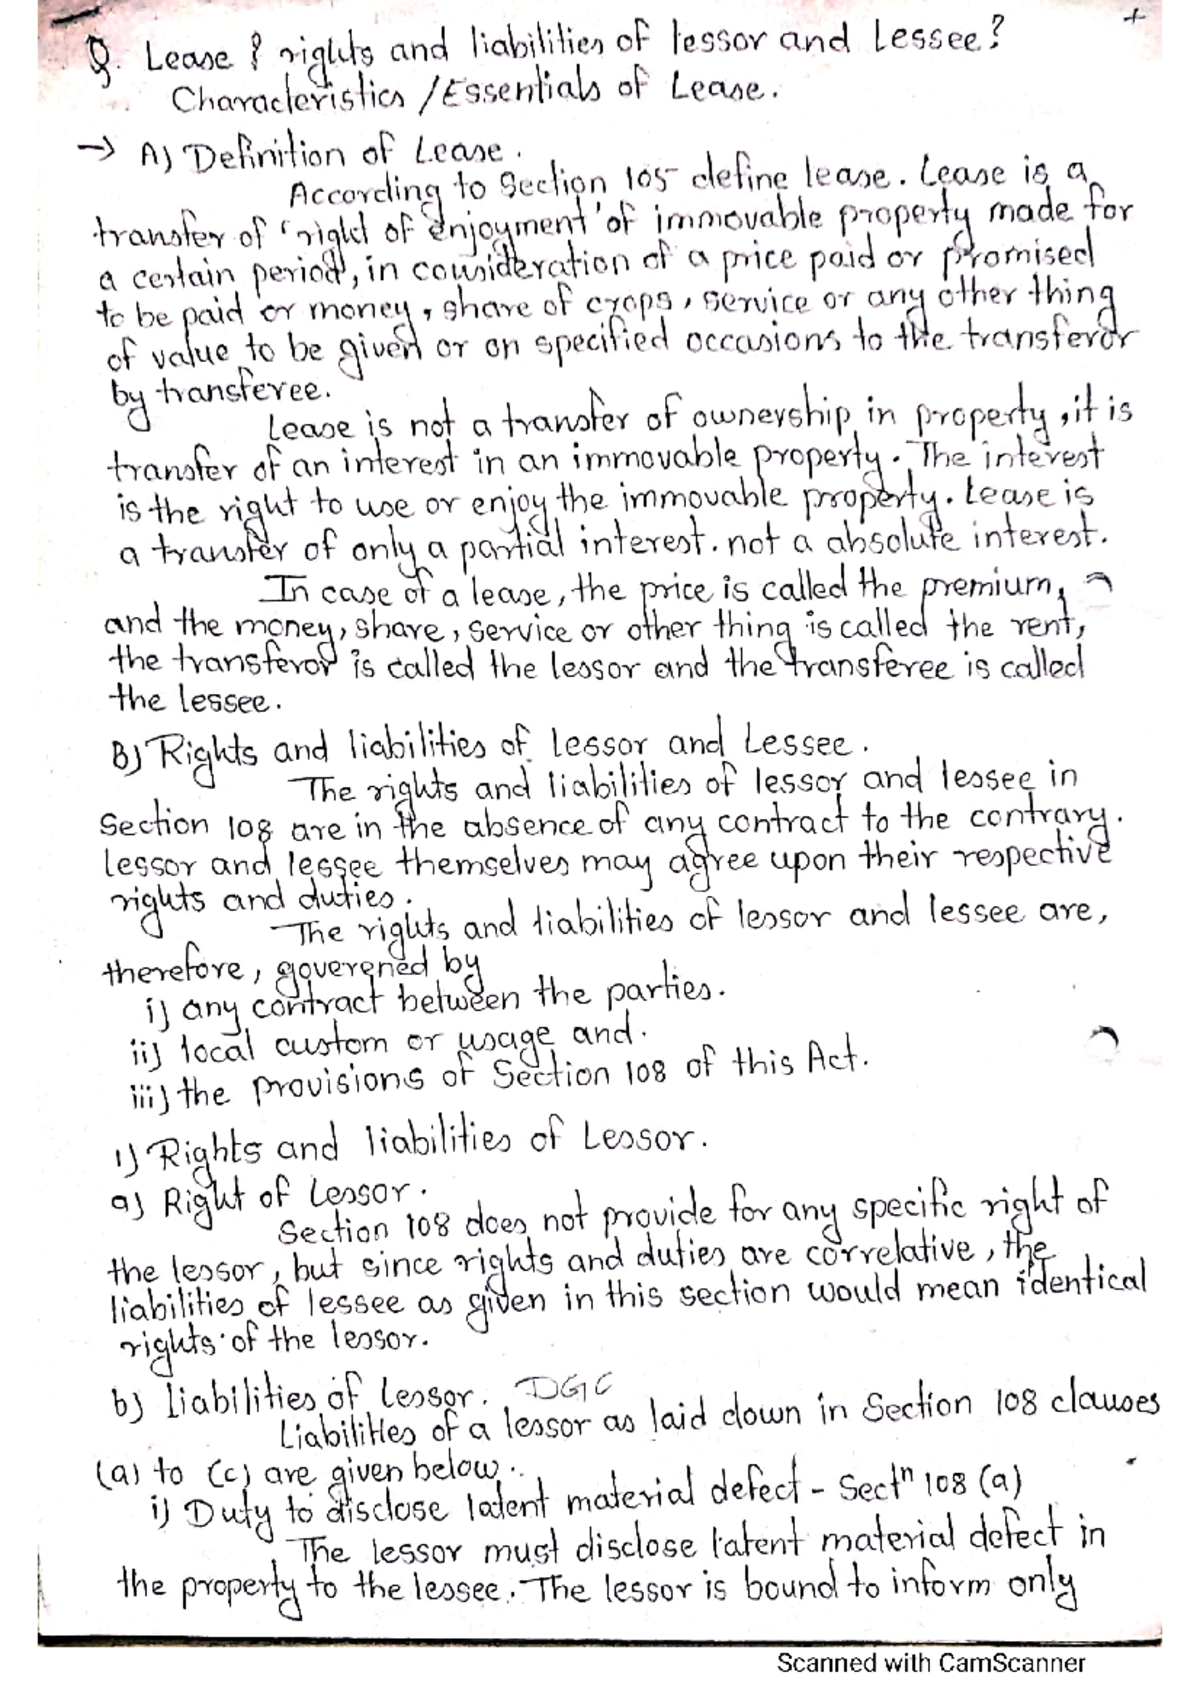 +
Q. Lease? rights and liabilities of lessor and Lessee?
Characteristics /Essentials of Lease.
→ A) Definition of Lease.
According to Section 105 define lease. Lease is a
transfer of 'right of enjoyment' of immovable property made for
a certain period, in consideration of a price paid or promised
to be paid or money, share of crops, service or any other thing
of value to be given or on specified occasions to the transferor
by transferee.
Lease is not a transfer of ownership in property, it is
transfer of an interest in an immovable property. The interest
is the right to use or enjoy the immovable property. Lease is
a transfer of only a partial interest. not a absolute interest.
In case of a lease, the price is called the premium,
and the money, share, service or other thing is called the rent,
the transferor is called the lessor and the transferee is called
the lessee.
B) Rights and liabilities of lessor and Lessee.
The rights and liabilities of lessor and lessee in
Section 108 are in the absence of any contract to the contrary.
lessor and lessee themselves may agree upon their respective
rights and duties.
The rights and liabilities of lessor and lessee are,
therefore, goverened by
i) any contract between the parties.
ii) local custom or usage and.
iii) the provisions of Section 108 of this Act.
1) Rights and liabilities of Lessor.
a) Right of Lessor.
Section 108 does not provide for any specific right of
the lessor, but since rights and duties are correlative, the
liabilities of lessee as given in this section would mean identical
rights of the lessor.
b) liabilities of lessor. DGC
Liabilities of a lessor as laid down in Section 108 clauses
(a) to (c) are given below.
i) Duty to disclose latent material defect - Sectn 108 (a)
The lessor must disclose latent material defect in
the property to the lessee. The lessor is bound to inform only
Scanned with CamScanner